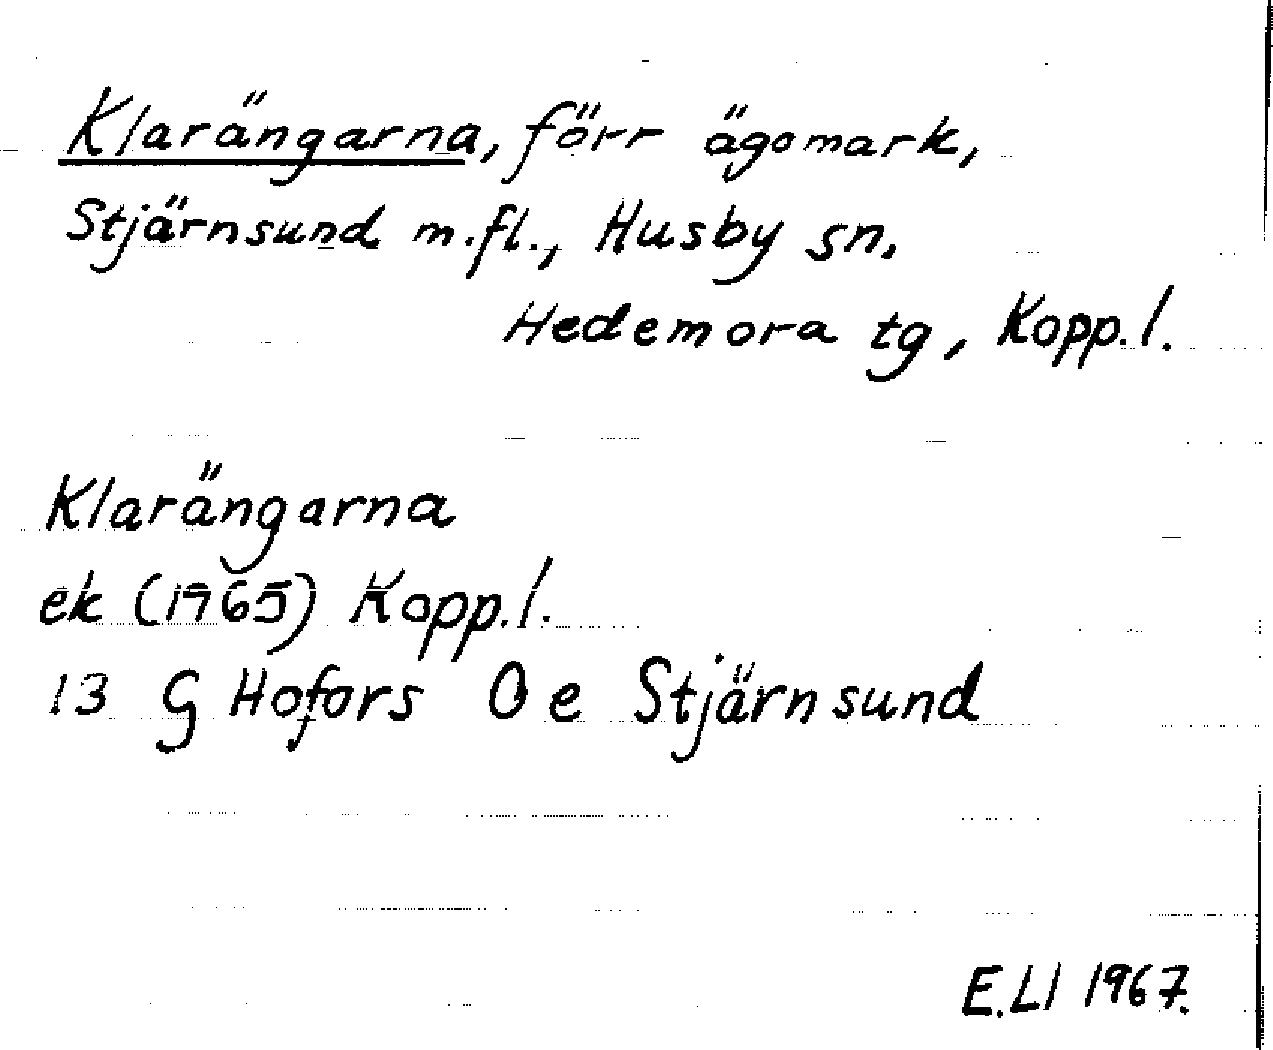 Klarängarna, förr ägomark,
Stjärnsund m.fl., Husby sn.
Hedemora tg, Kopp.l.
Klarängarna
ek (1965) Kopp.l.
13 G Hofors O e Stjärnsund
E.Ll 1967.